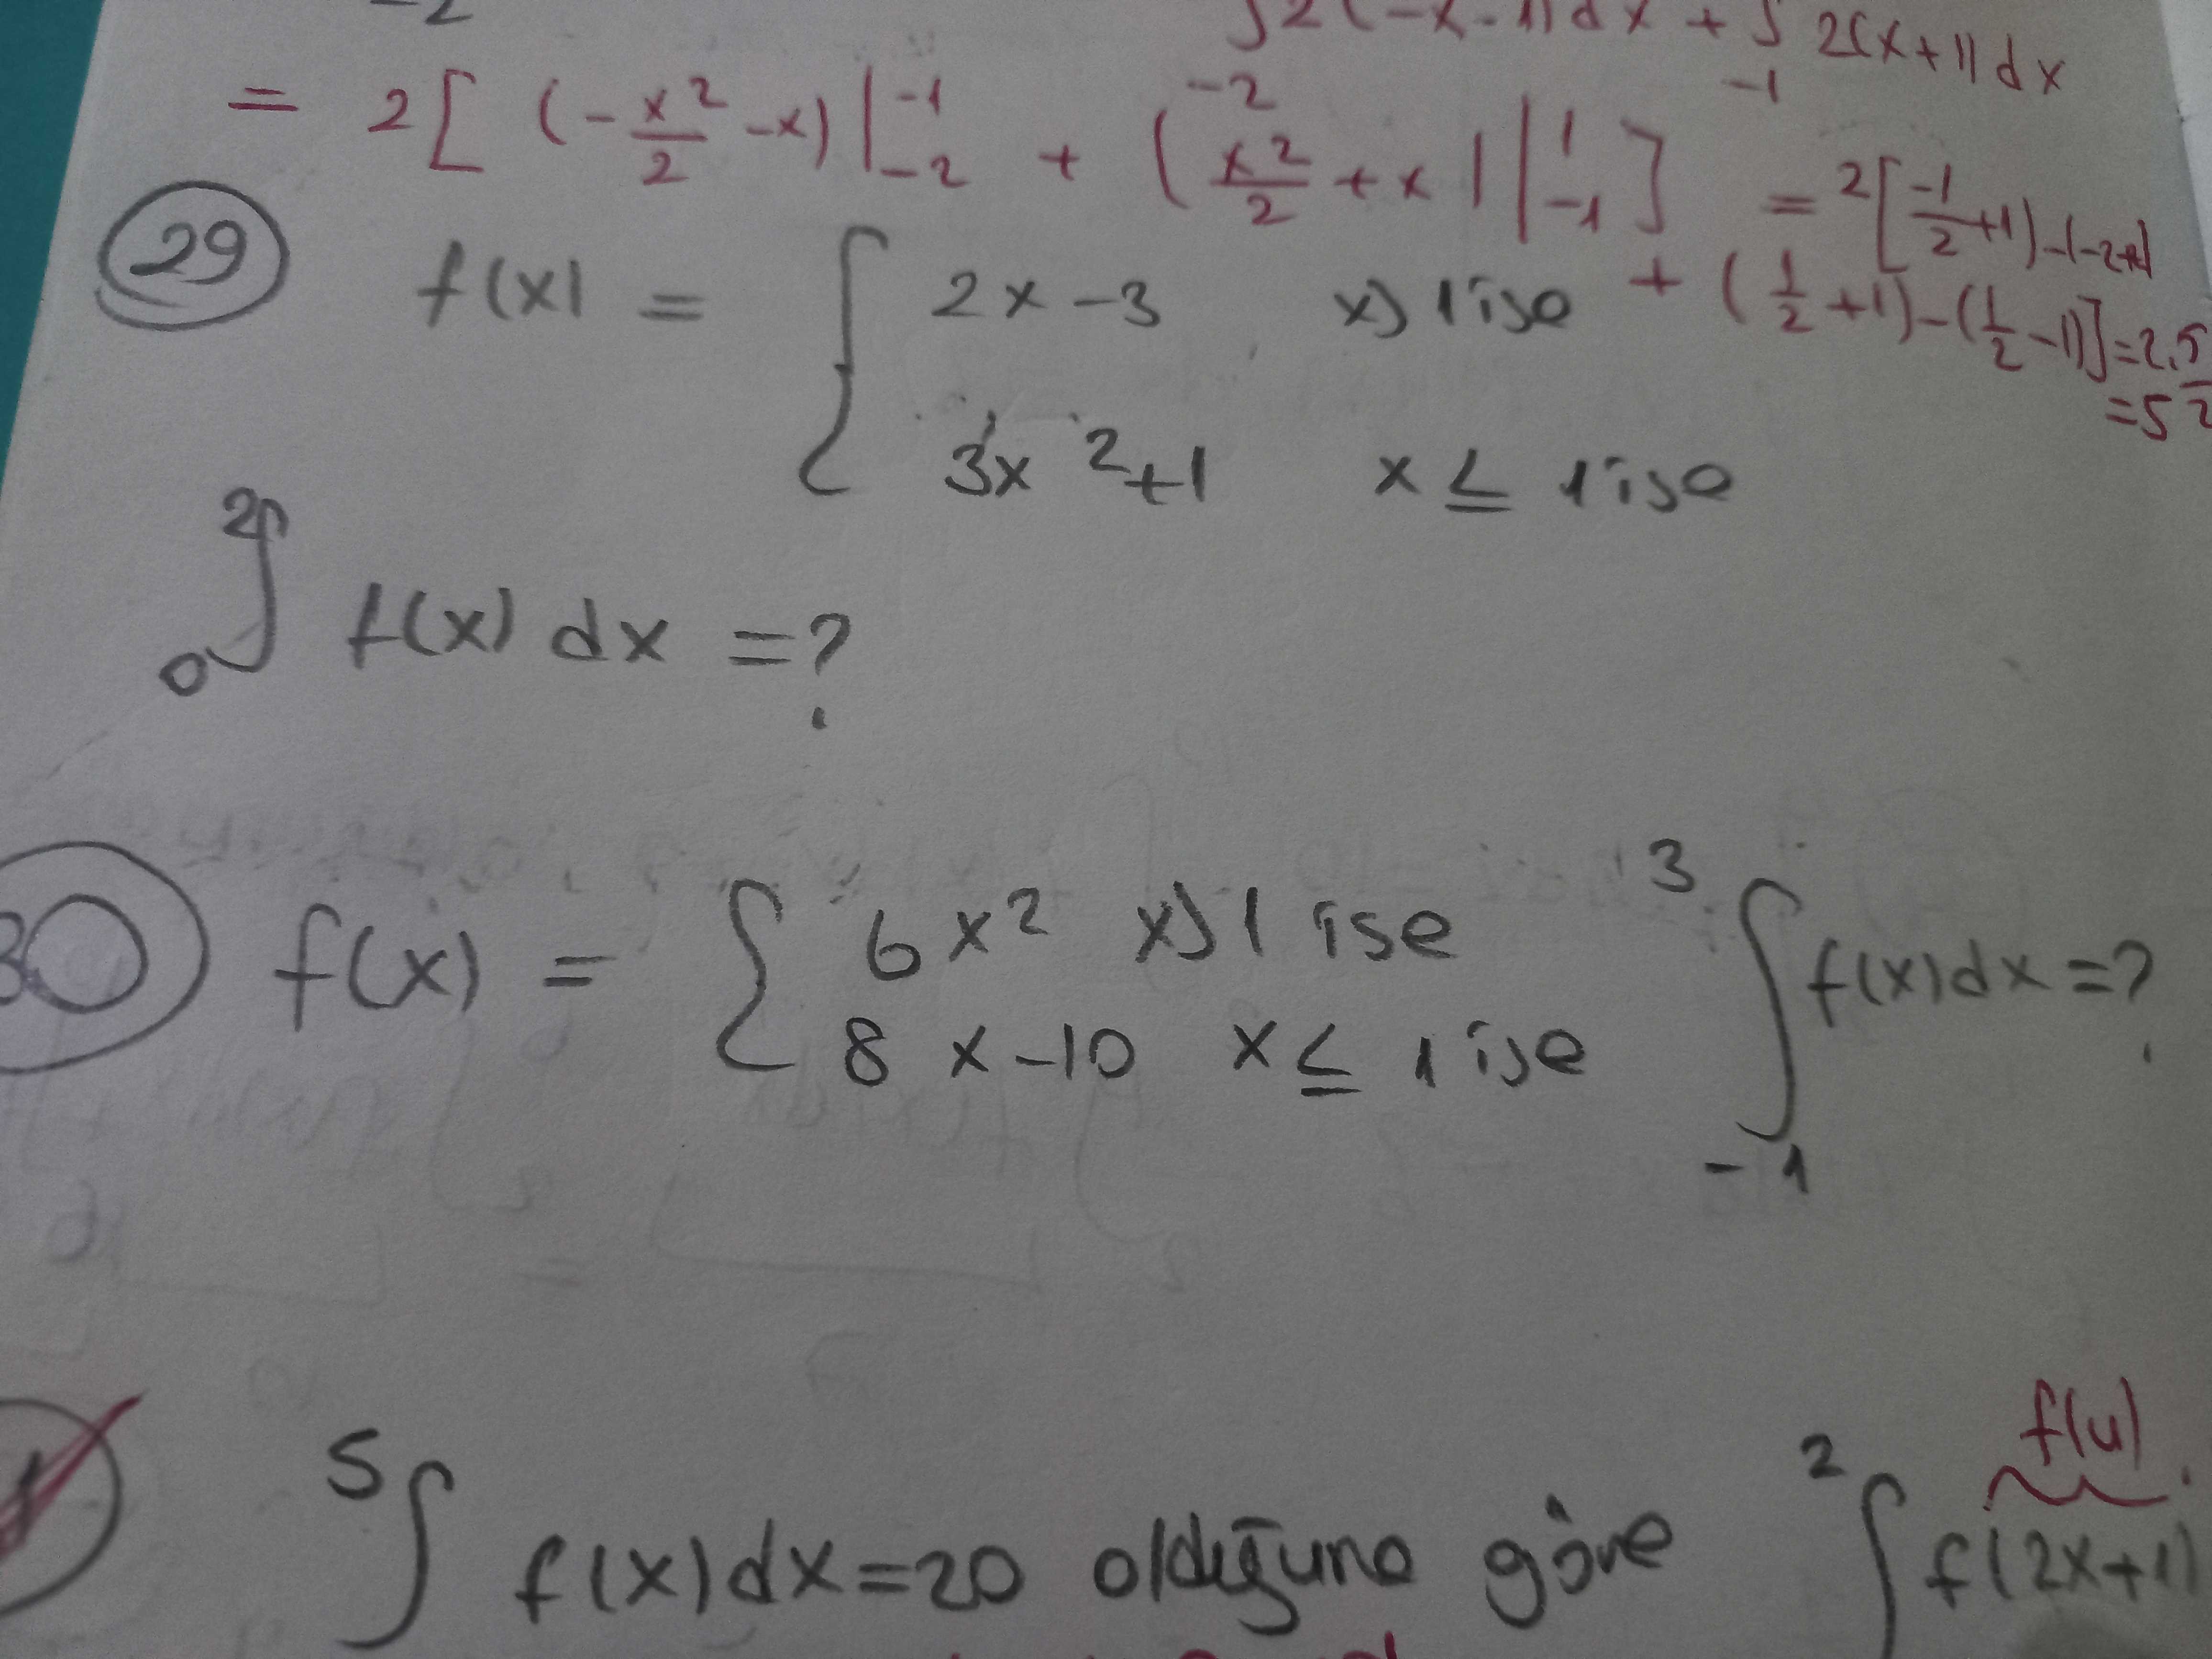 -2
∫ 2(-x-1)dx + ∫ 2(x+1)dx
-2 -1
= 2[ (-x²/2 -x)|₋₂⁻¹ + (x²/2 + x)|₋₁¹ ] = 2[(-1/2+1)-(-2+
+ (1/2+1)-(1/2-1)]=2.5/2
=5
29 f(x) = { 2x-3 x>1 ise
3x²+1 x≤1 ise
∫₀² f(x) dx =?
30 f(x) = { 6x² x>1 ise ∫₋₁³ f(x)dx=?
8x-10 x≤1 ise
f(u)
5∫ f(x)dx=20 olduğuna göre 2∫ f(2x+1)